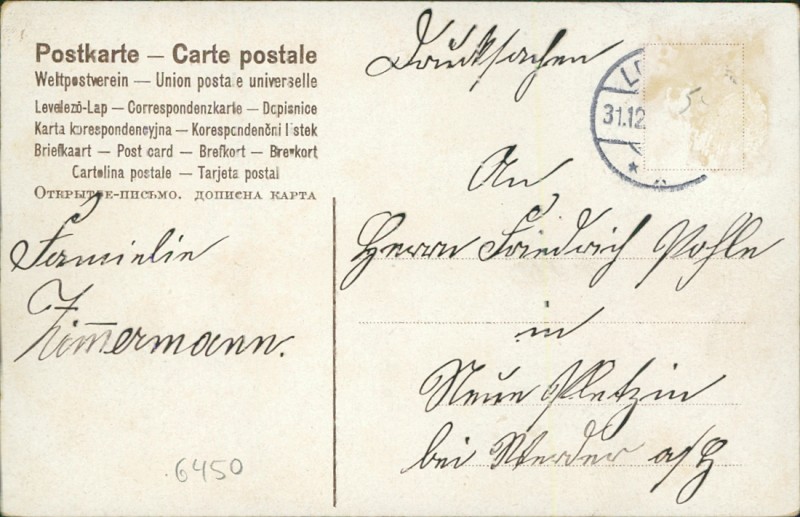 Postkarte — Carte postale
Weltpostverein — Union postale universelle
Levelező-Lap — Correspondenzkarte — Dopisnice
Karta korespondencyjna — Korespondenční lístek
Briefkaart — Post card — Brefkort — Brevkort
Cartolina postale — Tarjeta postal
Открытое-письмо. дописна карта
Drucksachen
31.12
5
An
Herrn Friedrich Pohle
in
Neue
bei Werder a/H
Familie
Zimmermann.
6450